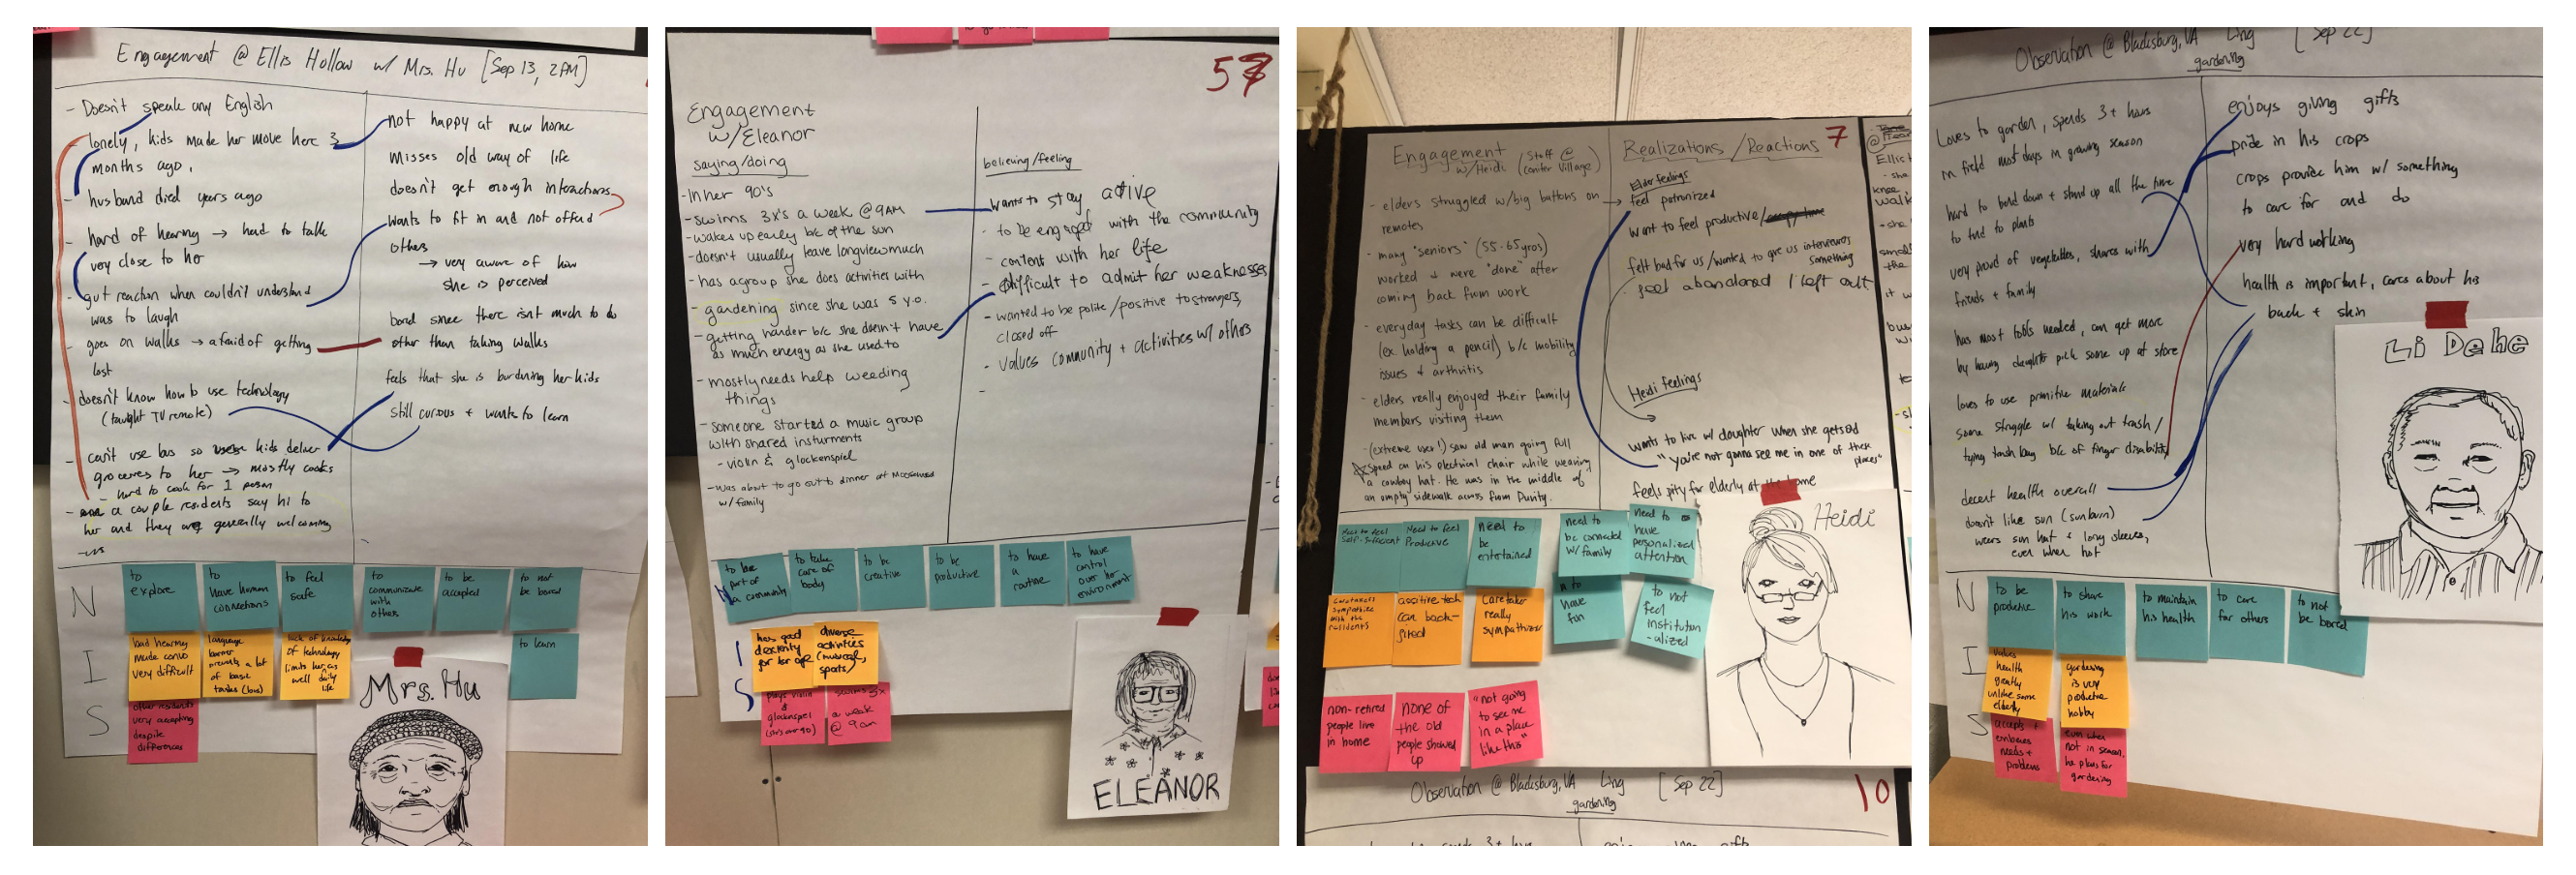 Engagement @ Ellis Hollow w/ Mrs. Hu [Sep 13, 2PM]
- Doesn't speak any English
- lonely, kids made her move here 3
months ago,
- husband died years ago
- hard of hearing → had to talk
very close to her
- gut reaction when couldn't understand
was to laugh
- goes on walks → afraid of getting
lost
- doesn't know how to use technology
(taught TV remote)
- can't use bus so kids deliver
groceries to her → mostly cooks
- hard to cook for 1 person
- a couple residents say hi to
her and they are generally welcoming
not happy at new home
misses old way of life
doesn't get enough interactions
wants to fit in and not offend
others
→ very aware of how
she is perceived
bored since there isn't much to do
other than taking walks
feels that she is burdening her kids
still curious + wants to learn
N
to explore
to have human connections
to feel safe
to communicate with others
to be accepted
to not be bored
I
bad hearing made convo very difficult
language barrier prevents a lot of basic tasks (bus)
lack of knowledge of technology limits her as well daily life
to learn
S
other residents very accepting despite differences
Mrs. Hu
Engagement
w/Eleanor
saying/doing
- In her 90's
- swims 3x's a week @ 9AM
- wakes up early b/c of the sun
- doesn't usually leave longview much
- has a group she does activities with
- gardening since she was 5 y.o.
- getting harder b/c she doesn't have
as much energy as she used to
- mostly needs help weeding
things
- someone started a music group
with shared insturments
- violin & glockenspiel
- was about to go out to dinner at
w/ family
believing/feeling
- wants to stay active
- to be engaged with the community
- content with her life
- difficult to admit her weaknesses
- wanted to be polite/positive to strangers,
closed off
- values community + activities w/ others
-
N
to be part of a community
to take care of body
to be creative
to be productive
to have a routine
to have control over her environment
I
has good dexterity for her age
diverse activities (musical, sports)
S
plays violin & glockenspiel (she's over 90)
swims 3x a week @ 9am
ELEANOR
Engagement
w/Heidi (Staff @ Conifer Village)
- elders struggled w/big buttons on
remotes
- many "seniors" (55-65yros)
worked & were "done" after
coming back from work
- everyday tasks can be difficult
(ex. holding a pencil) b/c mobility
issues & arthritis
- elders really enjoyed their family
members visiting them
- (extreme user!) saw old man going full
speed on his electrical chair while wearing
a cowboy hat. He was in the middle of
an empty sidewalk across from
Realizations/Reactions
7
Elder feelings
feel patronized
want to feel productive/
felt bad for us/wanted to give us interviewers
something
feel abandoned / left out
Heidi feelings
wants to live w/ daughter when she gets old
"you're not gonna see me in one of these
places"
feels pity for elderly at the home
Need to feel Self-Sufficient
Need to feel Productive
need to be entertained
need to be connected w/ family
need to have personalized attention
caretakers sympathize with the residents
assitive tech can back-fired
Caretaker really sympathizes
to have fun
to not feel institution-alized
non-retired people live in home
none of the old people showed up
"not going to see me in a place like this"
Heidi
Observation @ Blacksburg, VA Ling [Sep 22]
gardening
10
Observation @ Blacksburg, VA Ling [Sep 22]
gardening
Loves to garden, spends 3+ hours
in field most days in growing season
hard to bend down + stand up all the time
to tend to plants
very proud of vegetables, shares with
friends + family
has most tools needed, can get more
by having daughter pick some up at store
loves to use primitive materials
some struggle w/ taking out trash /
tying trash bag b/c of finger disability
decent health overall
doesn't like sun (sunburn)
wears sun hat + long sleeves,
even when hot
enjoys giving gifts
pride in his crops
crops provide him w/ something
to care for and do
very hard working
health is important, cares about his
back + skin
Li Dehe
N
to be productive
to share his work
to maintain his health
to care for others
to not be bored
I
values health greatly unlike some elderly
gardening is very productive hobby
S
accepts + embraces needs + problems
even when not in season, he plans for gardening